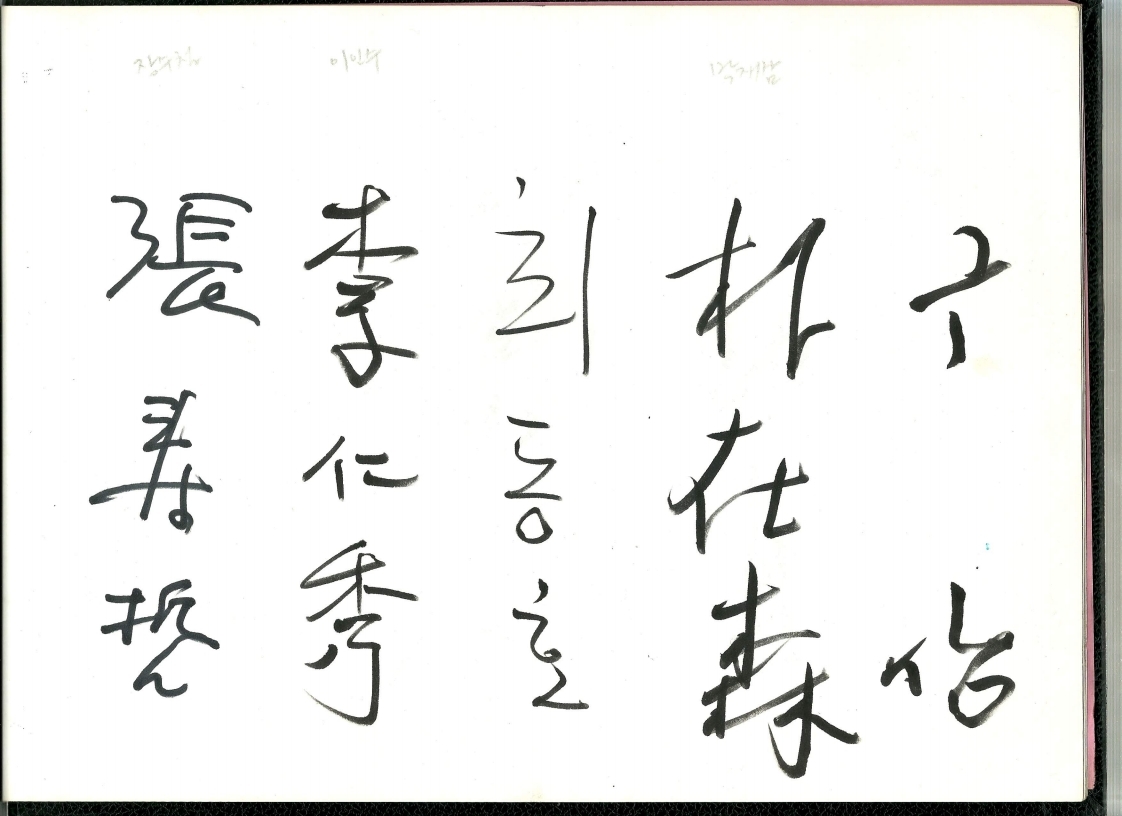 장수철
이인수
박재삼
구상
朴在森
최동호
李仁秀
張壽哲